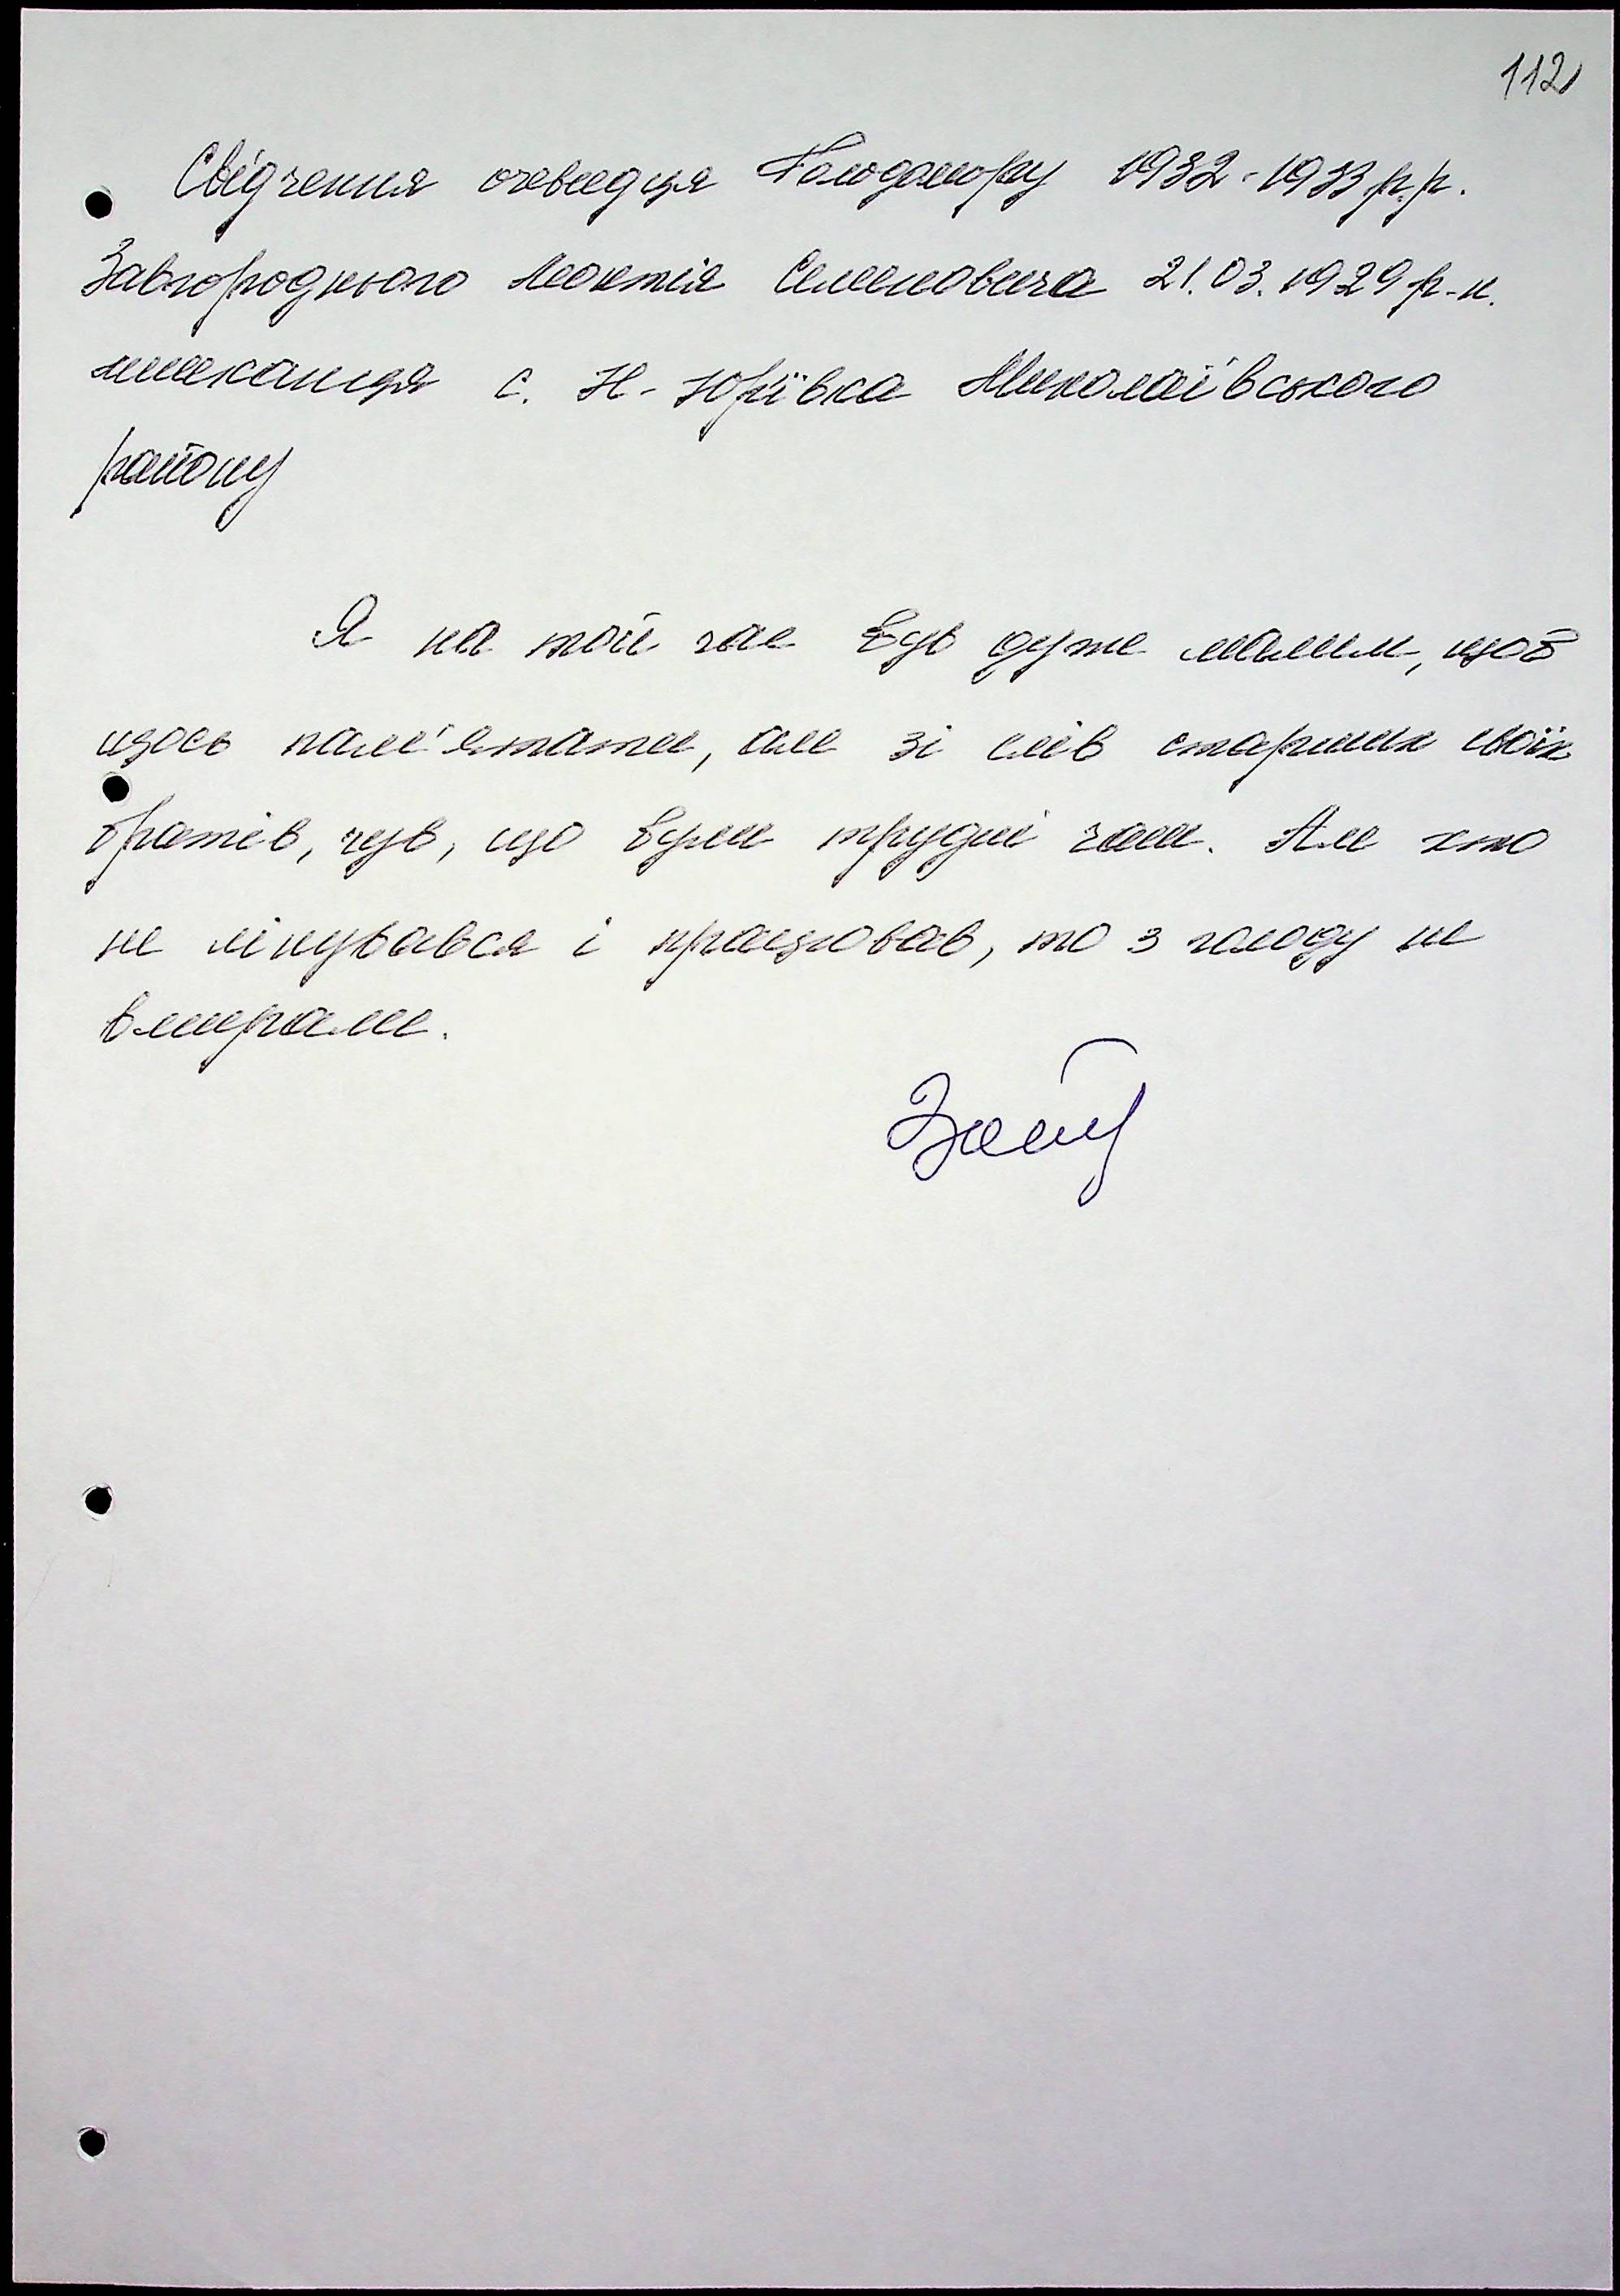 112
Свідчення очевидця Голодомору 1932-1933 р.р.
Завгороднього Леонтія Семеновича 21.03.1929 р.н.
мешканця с. Н-Юр'ївка Миколаївського
району
Я на той час був дуже малим, щоб
щось пам'ятати, але зі слів старших своїх
братів, чув, що були трудні часи. Але хто
не лінувався і працював, то з голоду не
вмирали.